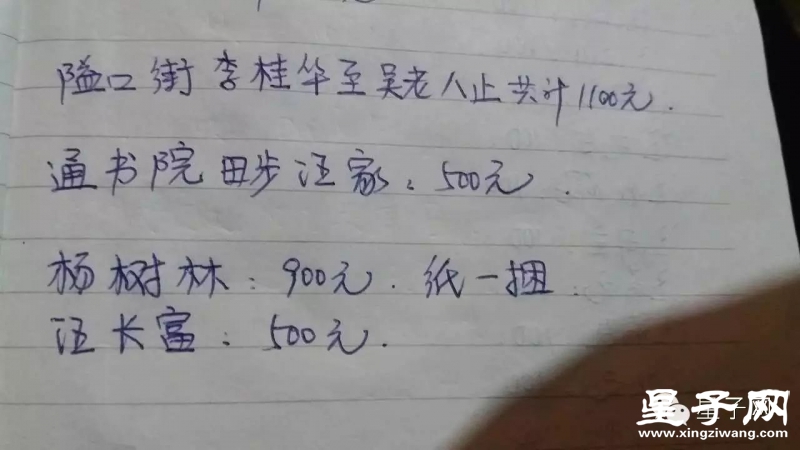 隘口街李桂华至吴老人止共计1100元.
通书院田步汪家：500元.
杨树林：900元. 纸一捆
汪长富：500元.
星子网
星子网
www.xingziwang.com